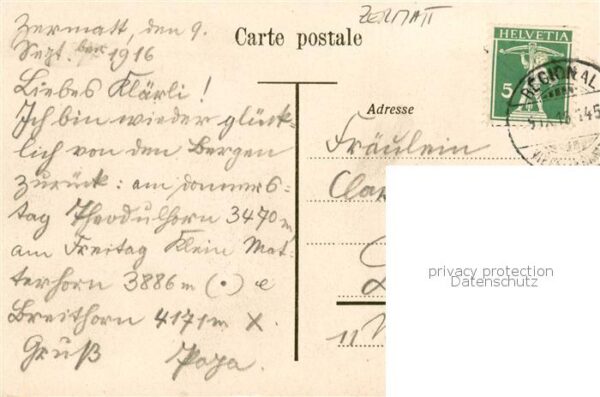 Zermatt, den 9.
Septber 1916
Liebes Klärli!
Ich bin wieder glück-
lich von den Bergen
zurück: am donners-
tag Theodulhorn 3470m
am Freitag Klein Mat-
terhorn 3886m (•) e
Breithorn 4171m X.
Gruß Papa.
ZERMATT
Carte postale
HELVETIA
5
REGIONAL
Adresse
Fräulein
Clar
privacy protection
Datenschutz